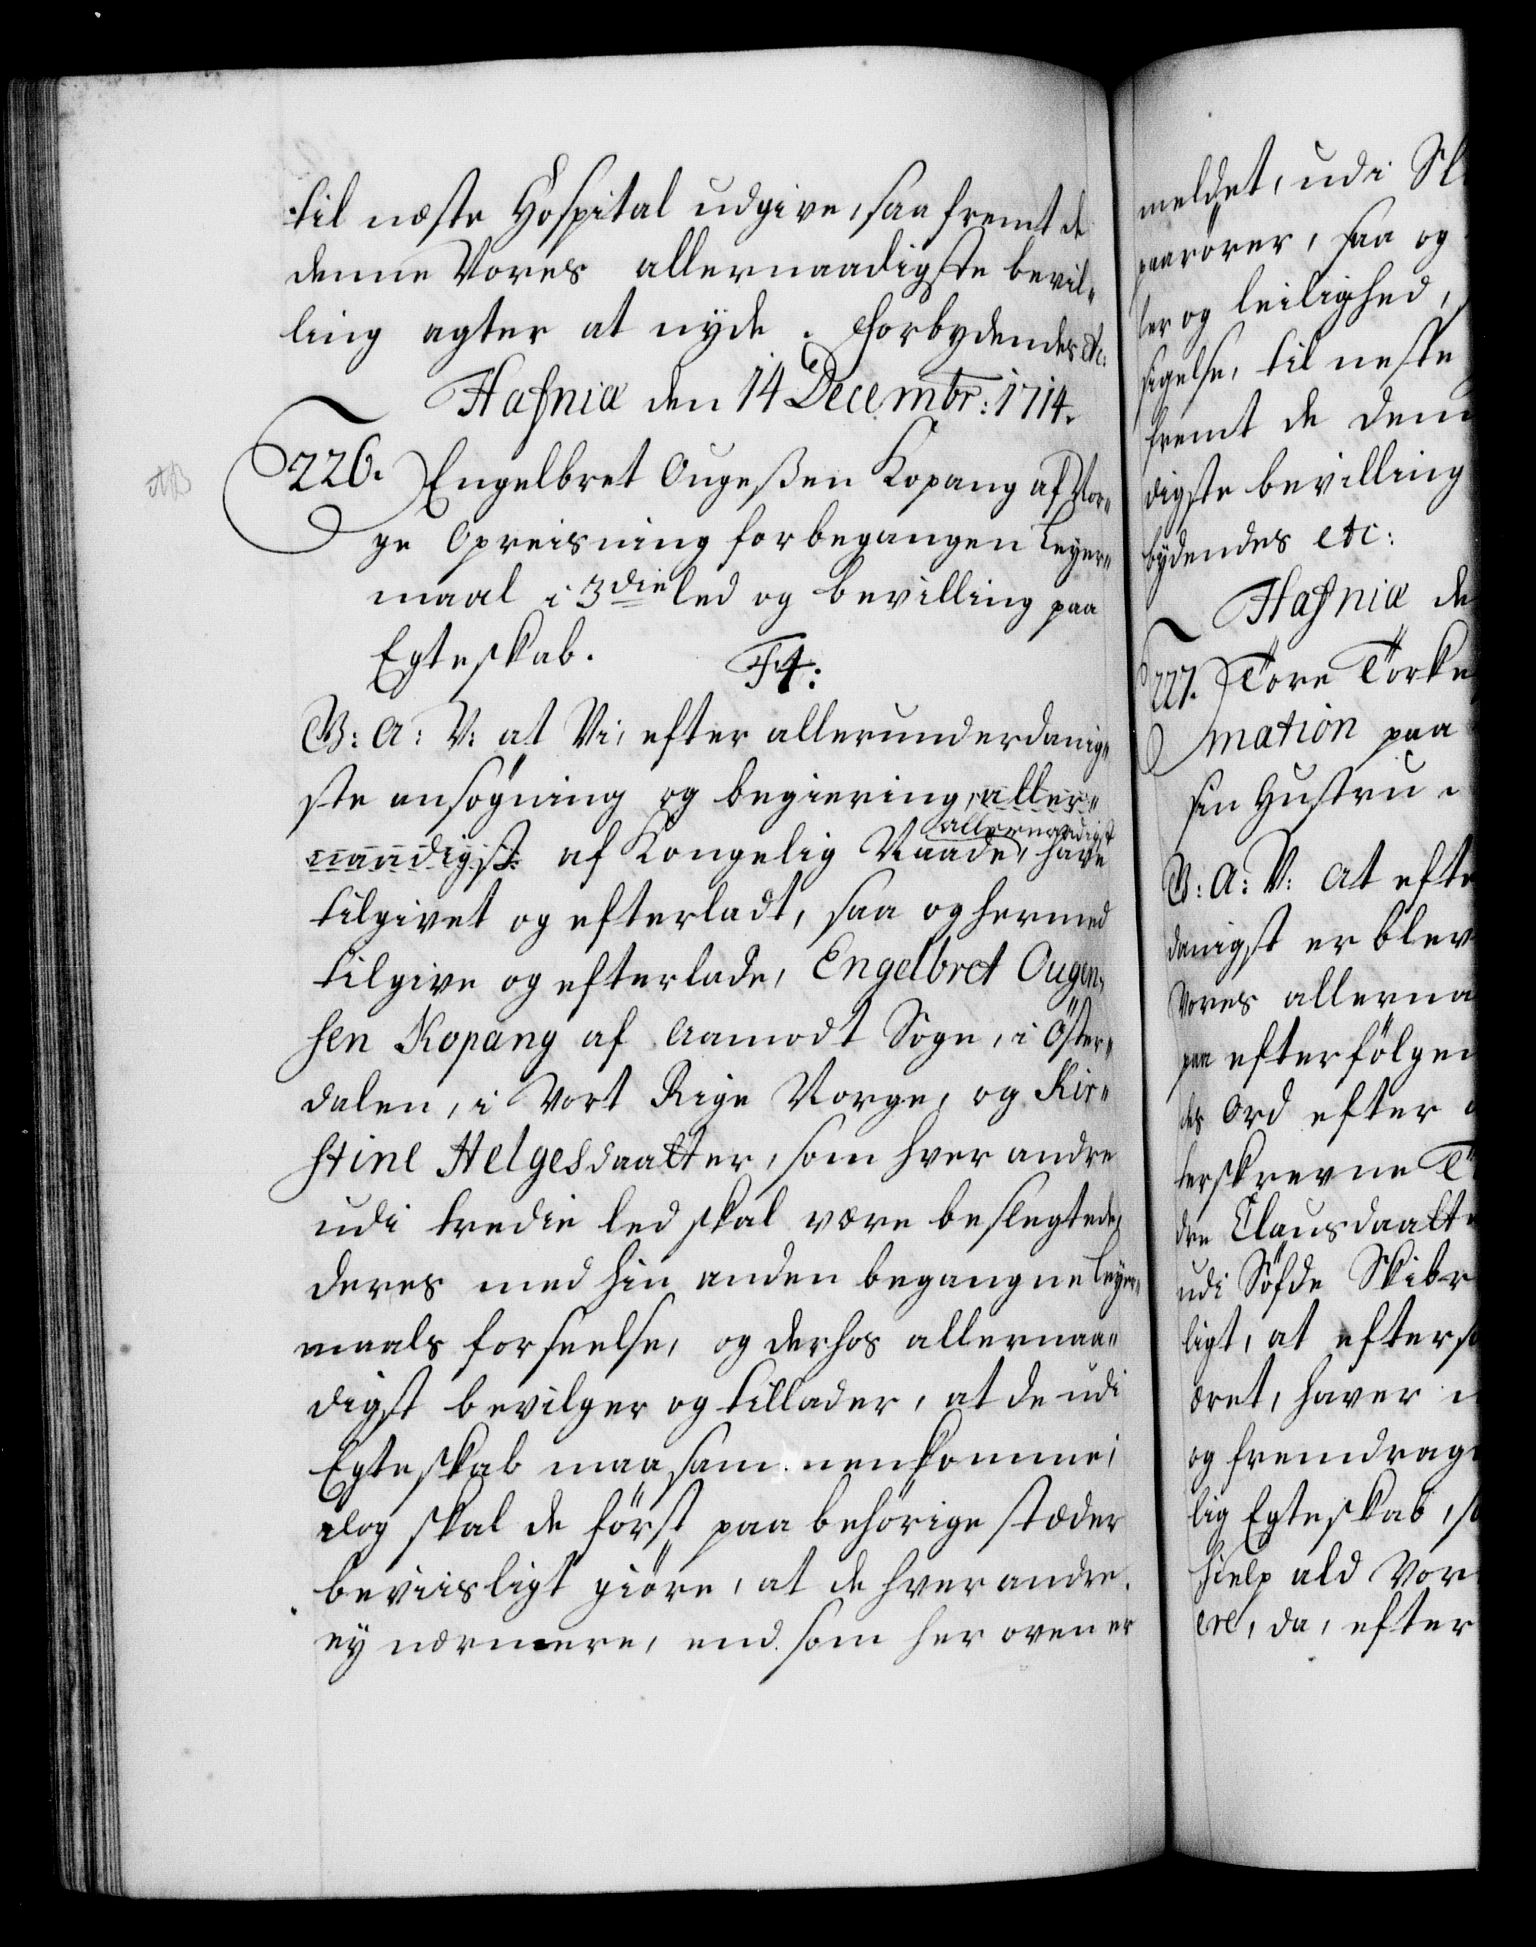 til næste Hospital udgive, saafremt de
denne Vores allernaadigste bevil„
ling agter at nyde. Forbydendes etc:
Hafniæ den 14 Decembr: 1714.
226. Engelbret Ougeßen Kopang af Nor„
ge Opreisning for begangen Leyer„
maal i 3die led og bevilling paa
Egteskab. F4:
G: A: V: at Vi, efter allerunderdanig„
ste ansøgning og begiering, aller„
naadigst af Kongelig Naade, allernaadigst have
tilgivet og efterladt, saa og hermed
tilgive og efterlade, Engelbret Ougen„
sen Kopang af Aamodt Sogn, i Öster„
dalen, i Vort Rige Norge, og Kir„
stine Helgesdaatter, som hver andre
udi tredie led skal være beslegtede,
deres med hin anden begangne Leyer„
maals forseelse, og derhos allernaa„
digst bevilger og tillader, at de udi
Egteskab maa sammenkomme;
dog skal de först paa behörige stæder
beviisligt giöre, at de hverandre
ey nærmere, end som her oven er
meldet, udi
paarörer, saa og
ler og leilighed,
sigelse, til neste
fremt de denn
digste bevilling
bydendes etc:
Hafniæ de
227. Tore Törke
mation paa
sin Hustru
G: A: V: At efte
danigst er blev
Vores allerna
paa efterfölgen
des Ord efter
terskrevne
dre Clausdaatt
udi Söfde Skibr
ligt, at efters
æret, haver
og fremdrage
lig Egteskab, s
hielp ald Vor
ere, da, efter